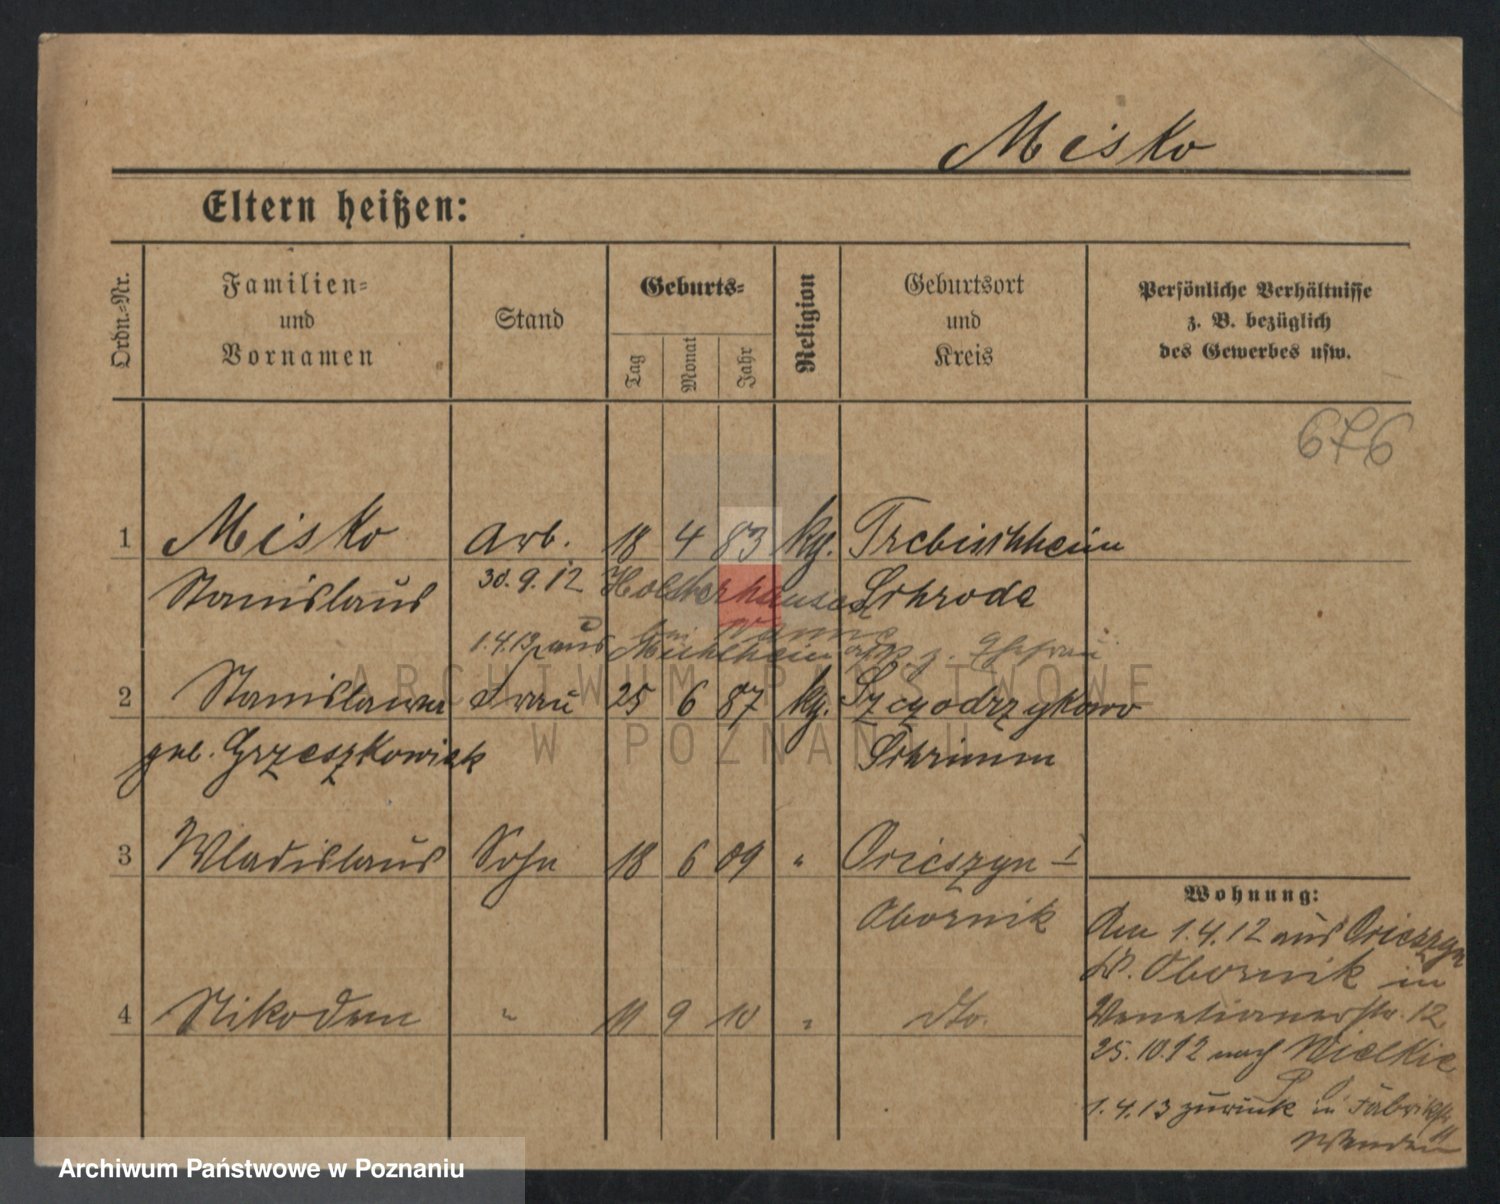 Misko
Eltern heißen:
Ordn.-Nr.
Familien=
und
Vornamen
Stand
Geburts=
Tag
Monat
Jahr
Religion
Geburtsort
und
Kreis
Persönliche Verhältnisse
z. B. bezüglich
des Gewerbes usw.
676
1 Misko Arb. 18 4 83 kg. Trebisshheim
Stanislaus 30.9.12 Holsterhausen Schroda
bei Wanne
1.4.13 aus Mühlheim z. Ehefrau
2 Stanislawa Frau 25 6 87 kg. Szczodrzykowo
geb. Grzeszkowiak Schrimm
3 Wladislaus Sohn 18 6 09 " Oricszyn I
Obornik
4 Nikodem " 11 9 10 " dto.
Wohnung:
Am 1.4.12 aus Oricszyn
Kr. Obornik in
Venetianerstr. 12
25.10.12 nach Wielkie
1.4.13 zurück in Fabrikstr
Wenden
ARCHIWUM PAŃSTWOWE
W POZNANIU
Archiwum Państwowe w Poznaniu